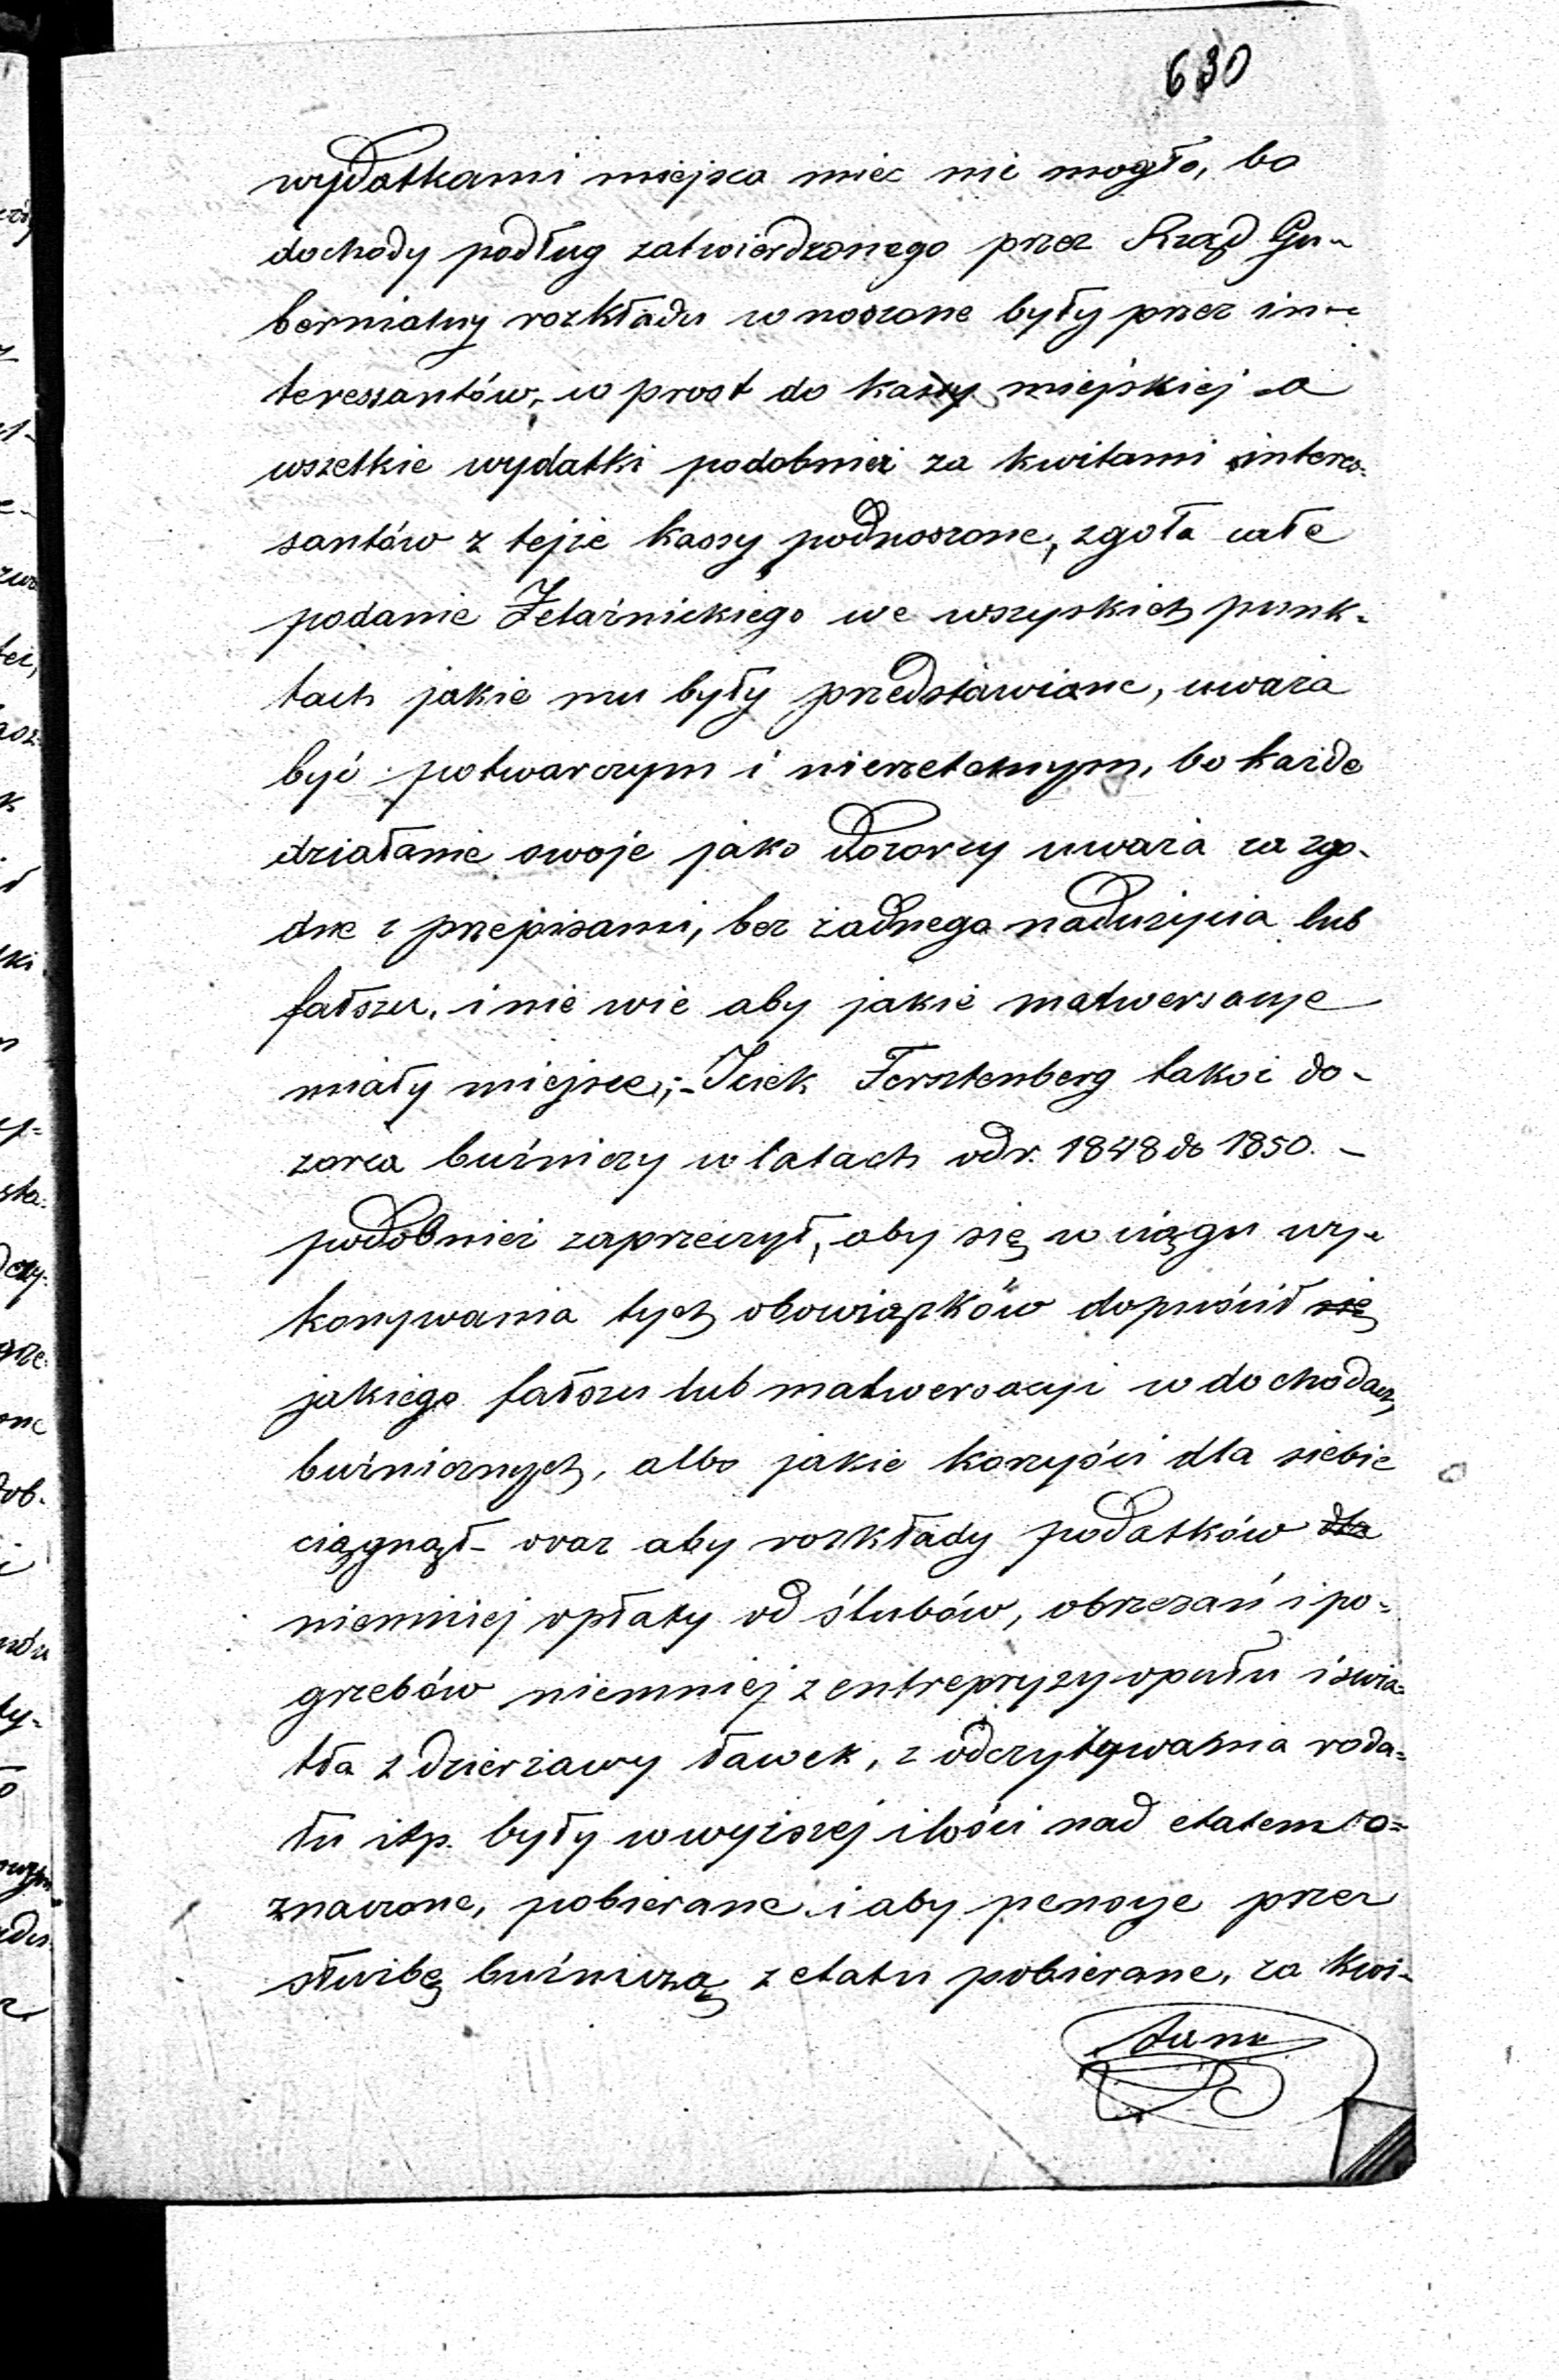 630
wydatkami miejsca mieć nie mogło, bo
dochody podług zatwierdzonego przez Rząd Gu-
bernialny rozkładu wnoszone były przez in-
teressantów, wprost do kassy miejskiej a
wszelkie wydatki podobnież za kwitami interes-
santów z tejże kassy podnoszone, zgoła całe
podanie Żelaźnickiego we wszyskich punk-
tach jakie mu były przedstawiane, uważa
być potwarczym i nierzetelnym, bo każde
działanie swoje jako Dozorcy uważa za zgo-
dne z przepisami, bez żadnego nadużycia lub
fałszu, i nie wie aby jakie malwersacye
miały miejsce; - Icek Fersztenberg także do-
zorca bużniczy w latach od r. 1848 do 1850. -
podobnież zaprzeczył, aby się w ciągu wy-
konywania tych obowiązków dopuścił się
jakiego fałszu lub malwersacyi w dochodach
bużnicznych, albo jakie korzyści dla siebie
ciągnął - oraz aby rozkłady podatków dla
niemniej opłaty od ślubów, obrzezań i po-
grzebów niemniej z entrepryzy opału i świa-
tła z dzierżawy ławek, z odczytywania roda-
łu itp. były w wyższej ilości nad etatem o-
znaczone, pobierane i aby pensye przez
służbę bużniczą z etatu pobierane, za kwi-